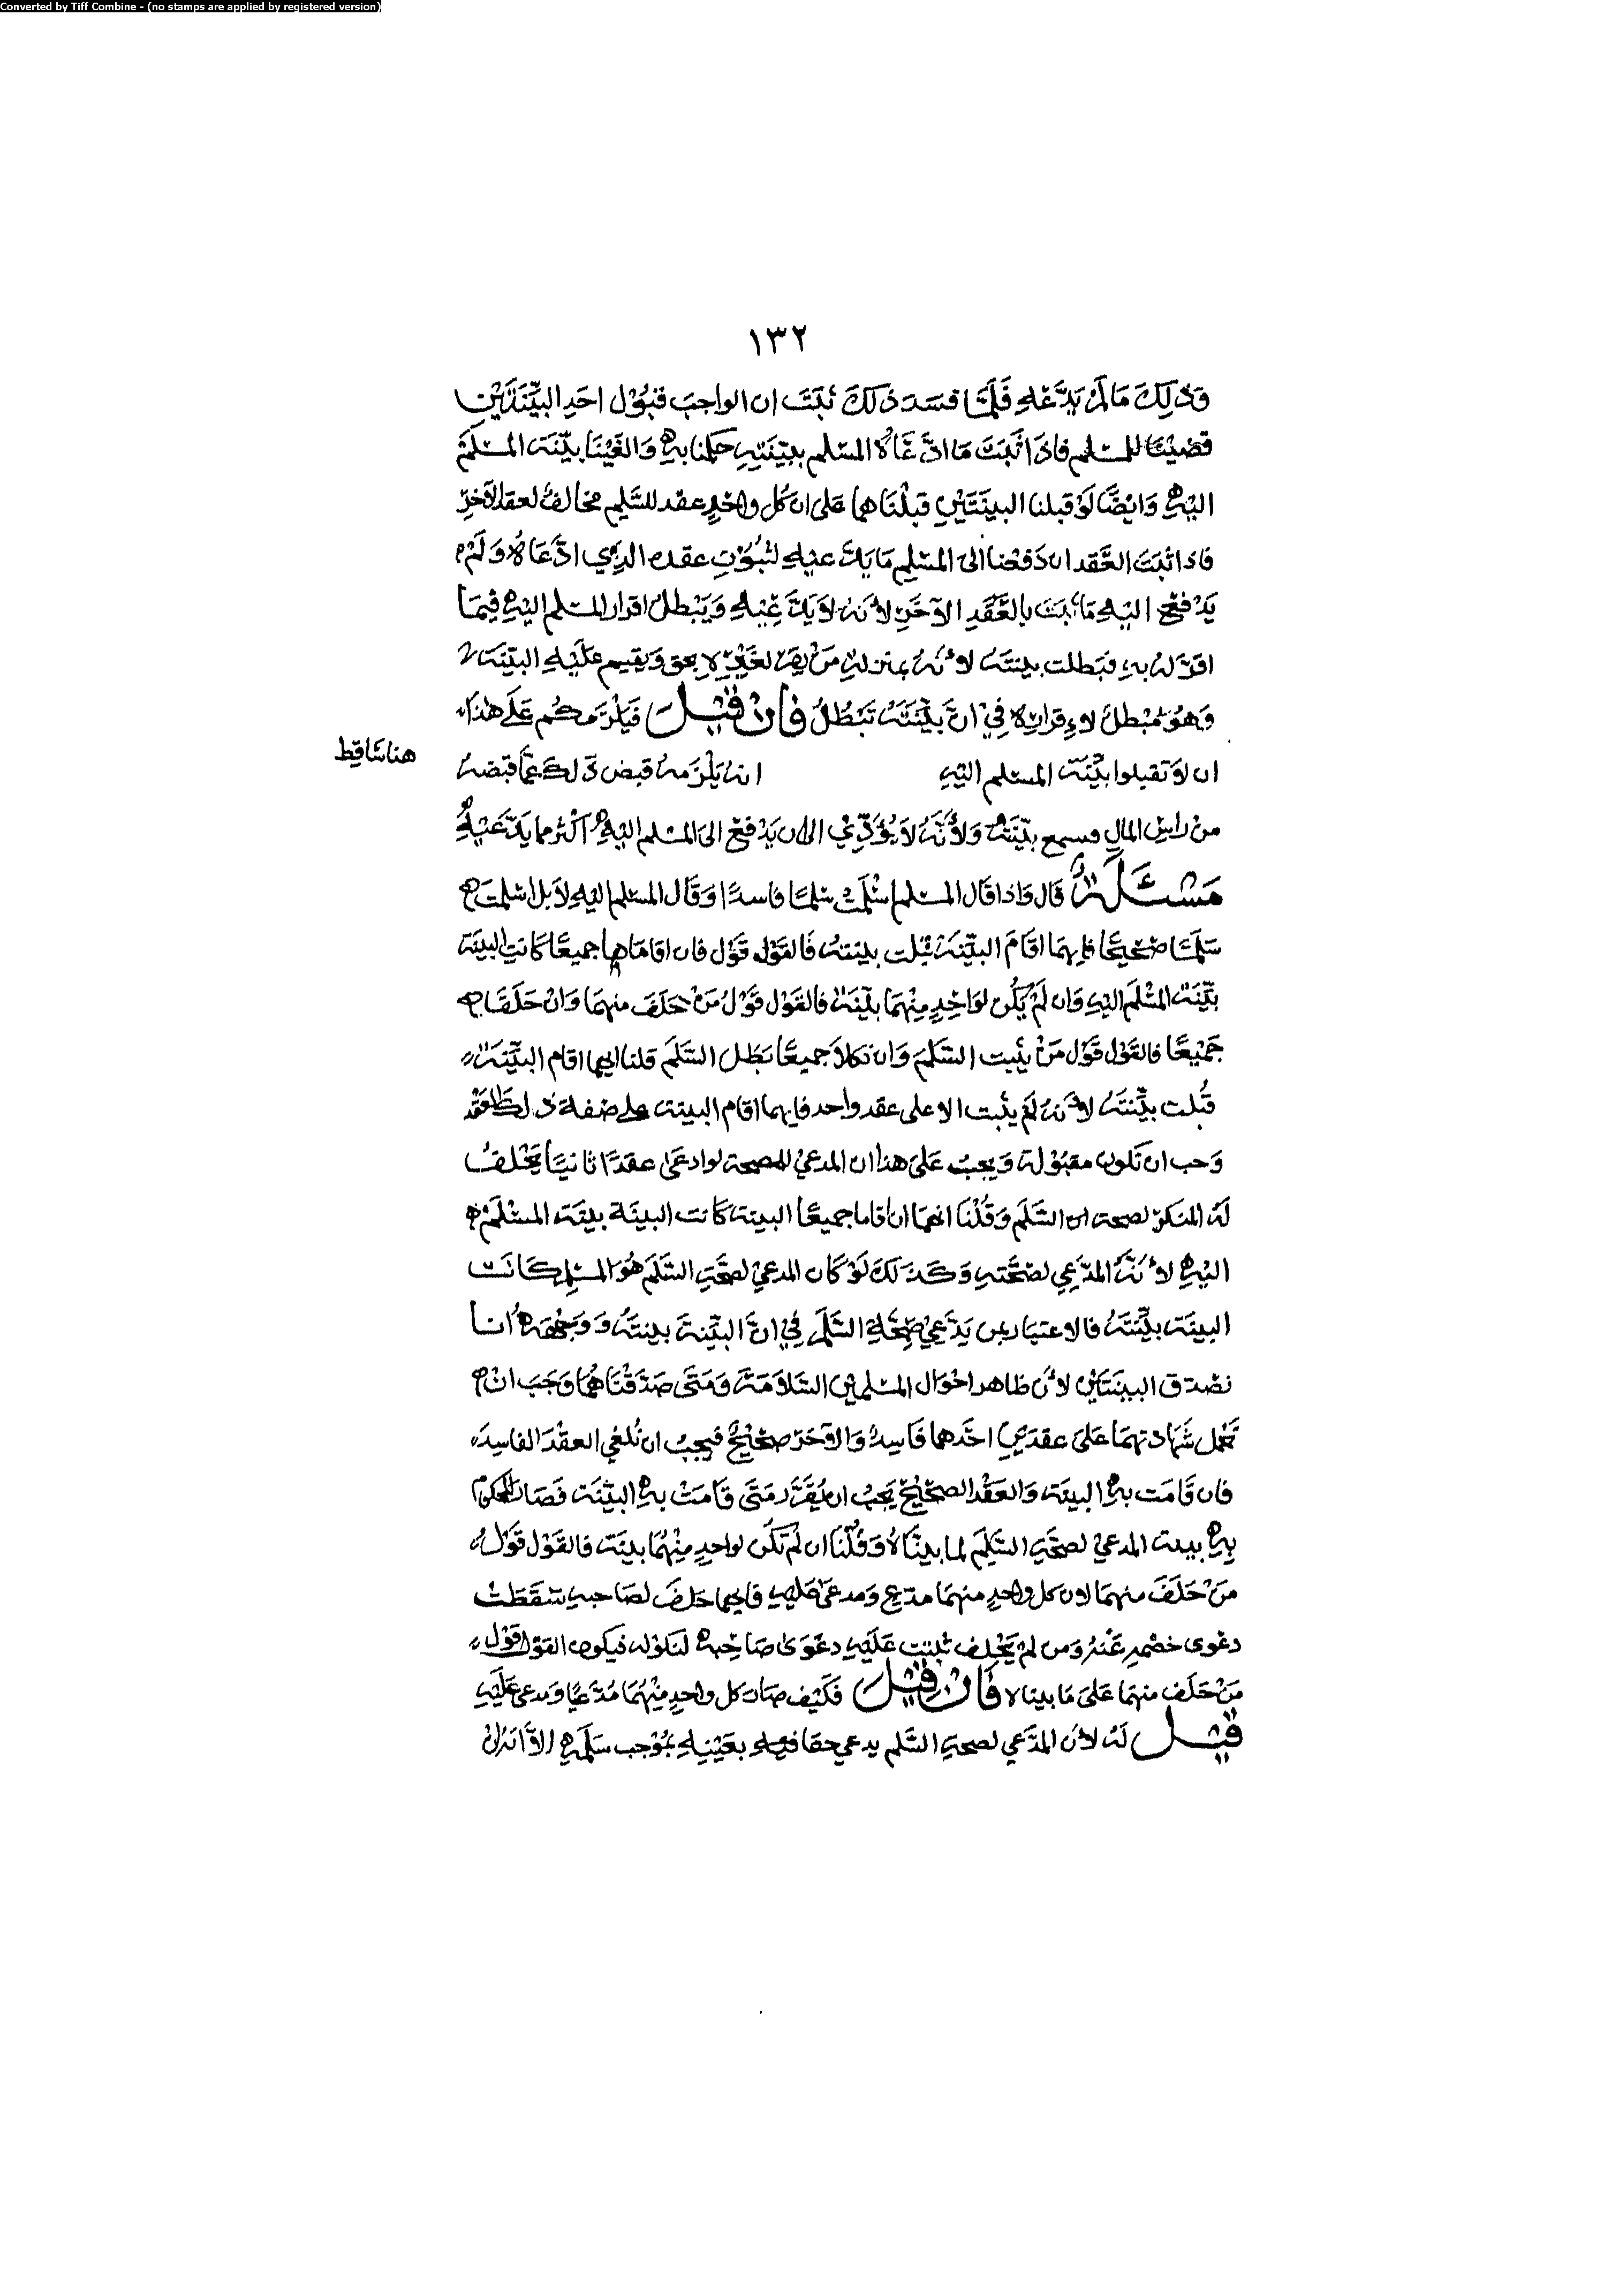 Converted by Tiff Combine - (no stamps are applied by registered version)
١٣٢
وذلك ما لم يدعه فلما فسد ذلك ثبت ان الواجب قبول احد البينتين
قضينا للمسلم فاذا ثبت ما ادعاه المسلم ببينته حكمنا به والغينا بينة المسلم
اليه وايضا لو قبلنا البينتين قبلناهما على ان كل واحد عقد للسلم مخالف لعقد الآخر
فاذا ثبت العقدان دفعنا الى المسلم ما يدعيه لثبوت عقده الذي ادعاه ولم
يدفع اليه ما ثبت بالعقد الآخر لأنه لا يدعيه ويبطل اقرار المسلم اليه فيما
اقر له به فبطلت بينته لأنه بمنزلة من يقر لغيره بحق ويقيم عليه البينة
وهو مبطل لإقراره في ان بينته تبطل فان قيل فيلزمكم على هذا
ان لا تقبلوا بينة المسلم اليه انه يلزمه قبض ذلك عما قبضه
هنا ساقط
من راس المال فسمع بينته ولأنه لا يؤدي الى ان يدفع الى المسلم اليه اكثر مما يدعيه
مسئلة قال واذا قال المسلم اسلمت سلما فاسدا وقال المسلم اليه لا بل اسلمت
سلما صحيحا فايهما اقام البينة قبلت بينته فالقول قول فان اقاماها جميعا كانت البينة
بينة المسلم اليه وان لم يكن لواحد منهما بينة فالقول قول من حلف منهما وان حلفا
جميعا فالقول قول من يثبت السلم وان نكلا جميعا بطل السلم قلنا ايهما اقام البينة
قبلت بينته لأنه لم يثبت الا على عقد واحد فايهما اقام البينة على صفة ذلك العقد
وجب ان تكون مقبولة ويجب على هذا ان المدعي للصحة لو ادعى عقدا ثانيا يحلف
له المنكر لصحة السلم وقلنا انهما ان اقاما جميعا البينة كانت البينة بينة المسلم
اليه لأنه المدعي لصحته وكذلك لو كان المدعي لصحة السلم هو المسلم كانت
البينة بينته فالاعتبار بمن يدعي صحة السلم في ان البينة بينته ووجهه انا
نصدق البينتين لأن ظاهر احوال المسلمين السلامة ومتى صدقناهما وجب ان
تحمل شهادتهما على عقدين احدهما فاسد والآخر صحيح فيجب ان نلغي العقد الفاسد
فان قامت به البينة والعقد الصحيح يجب ان يقر متى قامت به البينة فصار المحكوم
به بينة المدعي لصحة السلم لما بيناه وقلنا ان لم تكن لواحد منهما بينة فالقول قول
من حلف منهما لان كل واحد منهما مدع ومدعى عليه فايهما حلف لصاحبه سقطت
دعوى خصمه عنه ومن لم يحلف ثبتت عليه دعوى صاحبه لنكوله فيكون القول قول
من حلف منهما على ما بيناه فان قيل فكيف صار كل واحد منهما مدعيا ومدعى عليه
قيل له لأن المدعي لصحة السلم يدعي حقا فيه بعينه بموجب سلمه الا انه ان